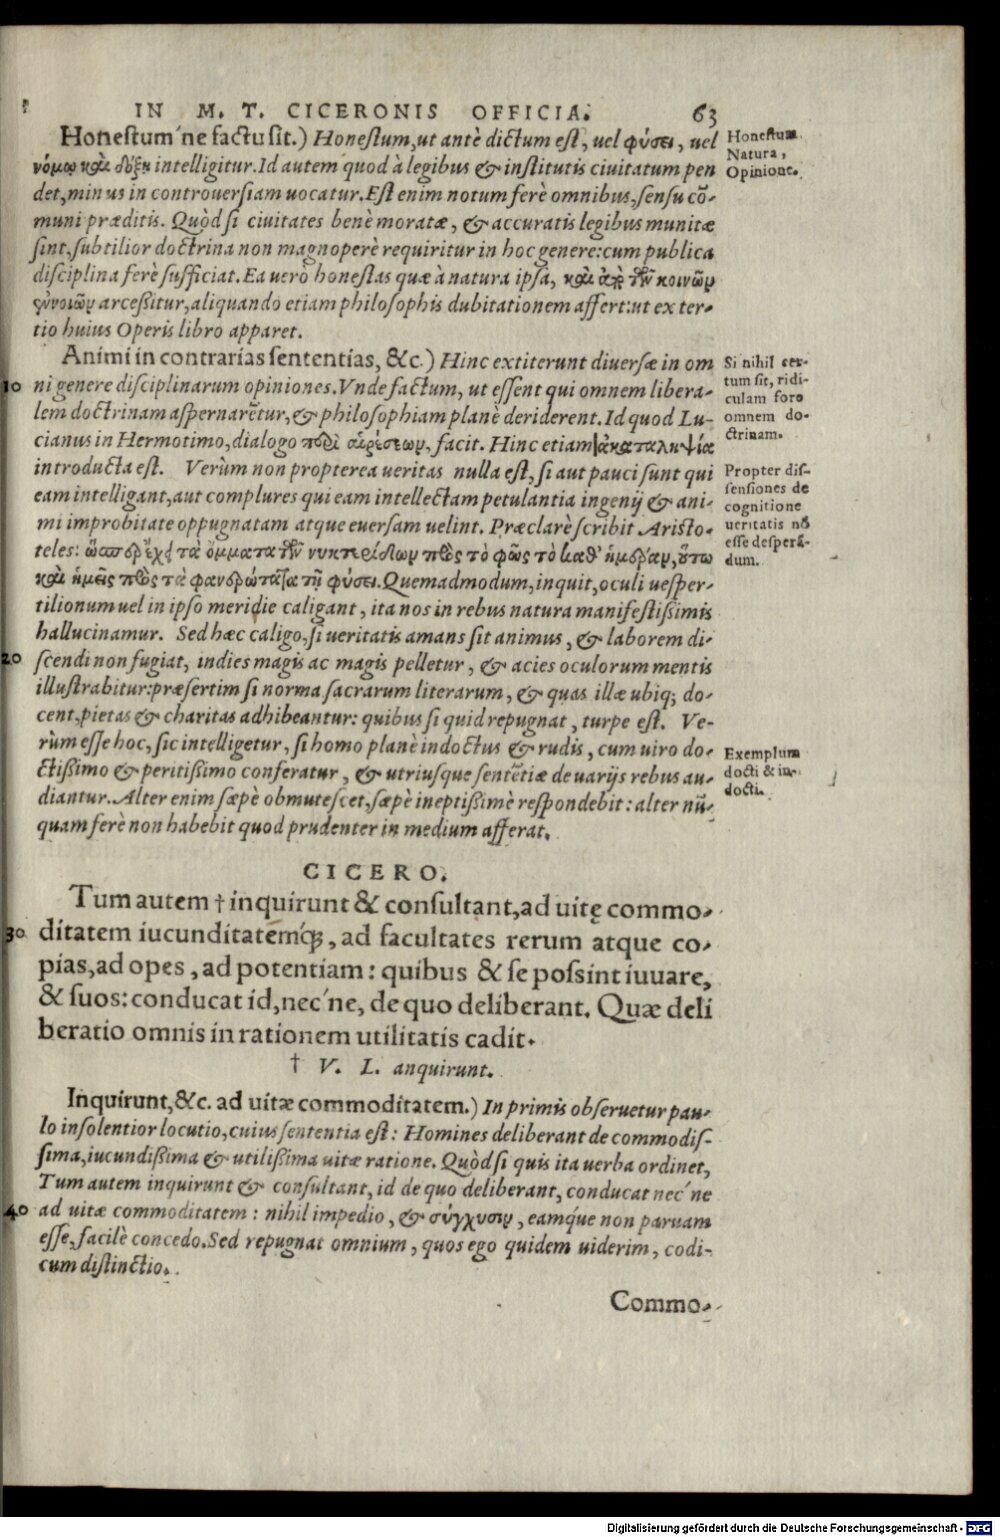 IN M. T. CICERONIS OFFICIA. 63
Honestum'ne factu sit.) Honestum, ut antè dictum est, uel φύσει, uel
νόμῳ καὶ δόξῃ intelligitur. Id autem quod à legibus & institutis ciuitatum pen
det, minus in controuersiam uocatur. Est enim notum ferè omnibus, sensu cō-
muni præditis. Quòd si ciuitates benè moratæ, & accuratis legibus munitæ
sint, subtilior doctrina non magnoperè requiritur in hoc genere: cum publica
disciplina ferè sufficiat. Ea uerò honestas quæ à natura ipsa, καὶ ἀπὸ τῶν κοινῶν
ἐννοιῶν arcessitur, aliquando etiam philosophis dubitationem affert: ut ex ter-
tio huius Operis libro apparet.
Honestum
Natura,
Opinione.
Animi in contrarias sententias, &c.) Hinc extiterunt diuersæ in om
10 ni genere disciplinarum opiniones. Vnde factum, ut essent qui omnem libera-
lem doctrinam aspernarētur, & philosophiam planè deriderent. Id quod Lu-
cianus in Hermotimo, dialogo περὶ αἱρέσεων, facit. Hinc etiam ἀκαταληψία
introducta est. Verùm non propterea ueritas nulla est, si aut pauci sunt qui
eam intelligant, aut complures qui eam intellectam petulantia ingenij & ani-
mi improbitate oppugnatam atque euersam uelint. Præclarè scribit Aristo-
teles: ὥσπερ ἔχει τὰ ὄμματα τῶν νυκτερίδων πρὸς τὸ φῶς τὸ καθ' ἡμέραν, οὕτω
καὶ ἡμεῖς πρὸς τὰ φανερώτατα τῇ φύσει. Quemadmodum, inquit, oculi uesper-
tilionum uel in ipso meridie caligant, ita nos in rebus natura manifestissimis
hallucinamur. Sed hæc caligo, si ueritatis amans sit animus, & laborem di-
20 scendi non fugiat, indies magis ac magis pelletur, & acies oculorum mentis
illustrabitur: præsertim si norma sacrarum literarum, & quas illæ ubiq; do-
cent, pietas & charitas adhibeantur: quibus si quid repugnat, turpe est. Ve-
rùm esse hoc, sic intelligetur, si homo planè indoctus & rudis, cum uiro do-
ctissimo & peritissimo conferatur, & utriusque sentētiæ de uarijs rebus au-
diantur. Alter enim sæpè obmutescet, sæpè ineptissimè respondebit: alter nū-
quam ferè non habebit quod prudenter in medium afferat.
Si nihil cer-
tum sit, ridi-
culam fore
omnem do-
ctrinam.
Propter dis-
sensiones de
cognitione
ueritatis nō
esse desperā-
dum.
Exemplum
docti & in-
docti.
CICERO.
Tum autem † inquirunt & consultant, ad uitę commo-
30 ditatem iucunditatémq;, ad facultates rerum atque co-
pias, ad opes, ad potentiam: quibus & se possint iuuare,
& suos: conducat id, nec'ne, de quo deliberant. Quæ deli
beratio omnis in rationem utilitatis cadit.
† V. L. anquirunt.
Inquirunt, &c. ad uitæ commoditatem.) In primis obseruetur pau-
lo insolentior locutio, cuius sententia est: Homines deliberant de commodis-
sima, iucundissima & utilissima uitæ ratione. Quòd si quis ita uerba ordinet,
Tum autem inquirunt & consultant, id de quo deliberant, conducat nec'ne
40 ad uitæ commoditatem: nihil impedio, & σύγχυσιν, eamq́ue non paruam
esse, facilè concedo. Sed repugnat omnium, quos ego quidem uiderim, codi-
cum distinctio.
Commo-
Digitalisierung gefördert durch die Deutsche Forschungsgemeinschaft - DFG